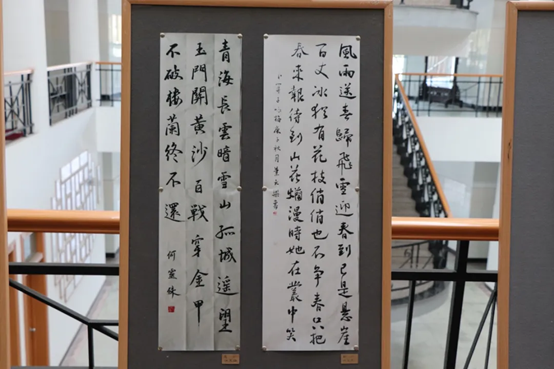 風雨送春歸飛雪迎春到已是懸崖
百丈冰猶有花枝俏俏也不爭春只把
春來報待到山花爛漫時她在叢中笑
卜算子詠梅庚子秋月
青海長雲暗雪山孤城遥望
玉門關黄沙百戰穿金甲
不破樓蘭終不還